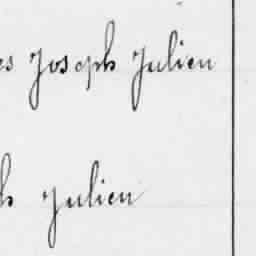 Joseph Julien
Julien